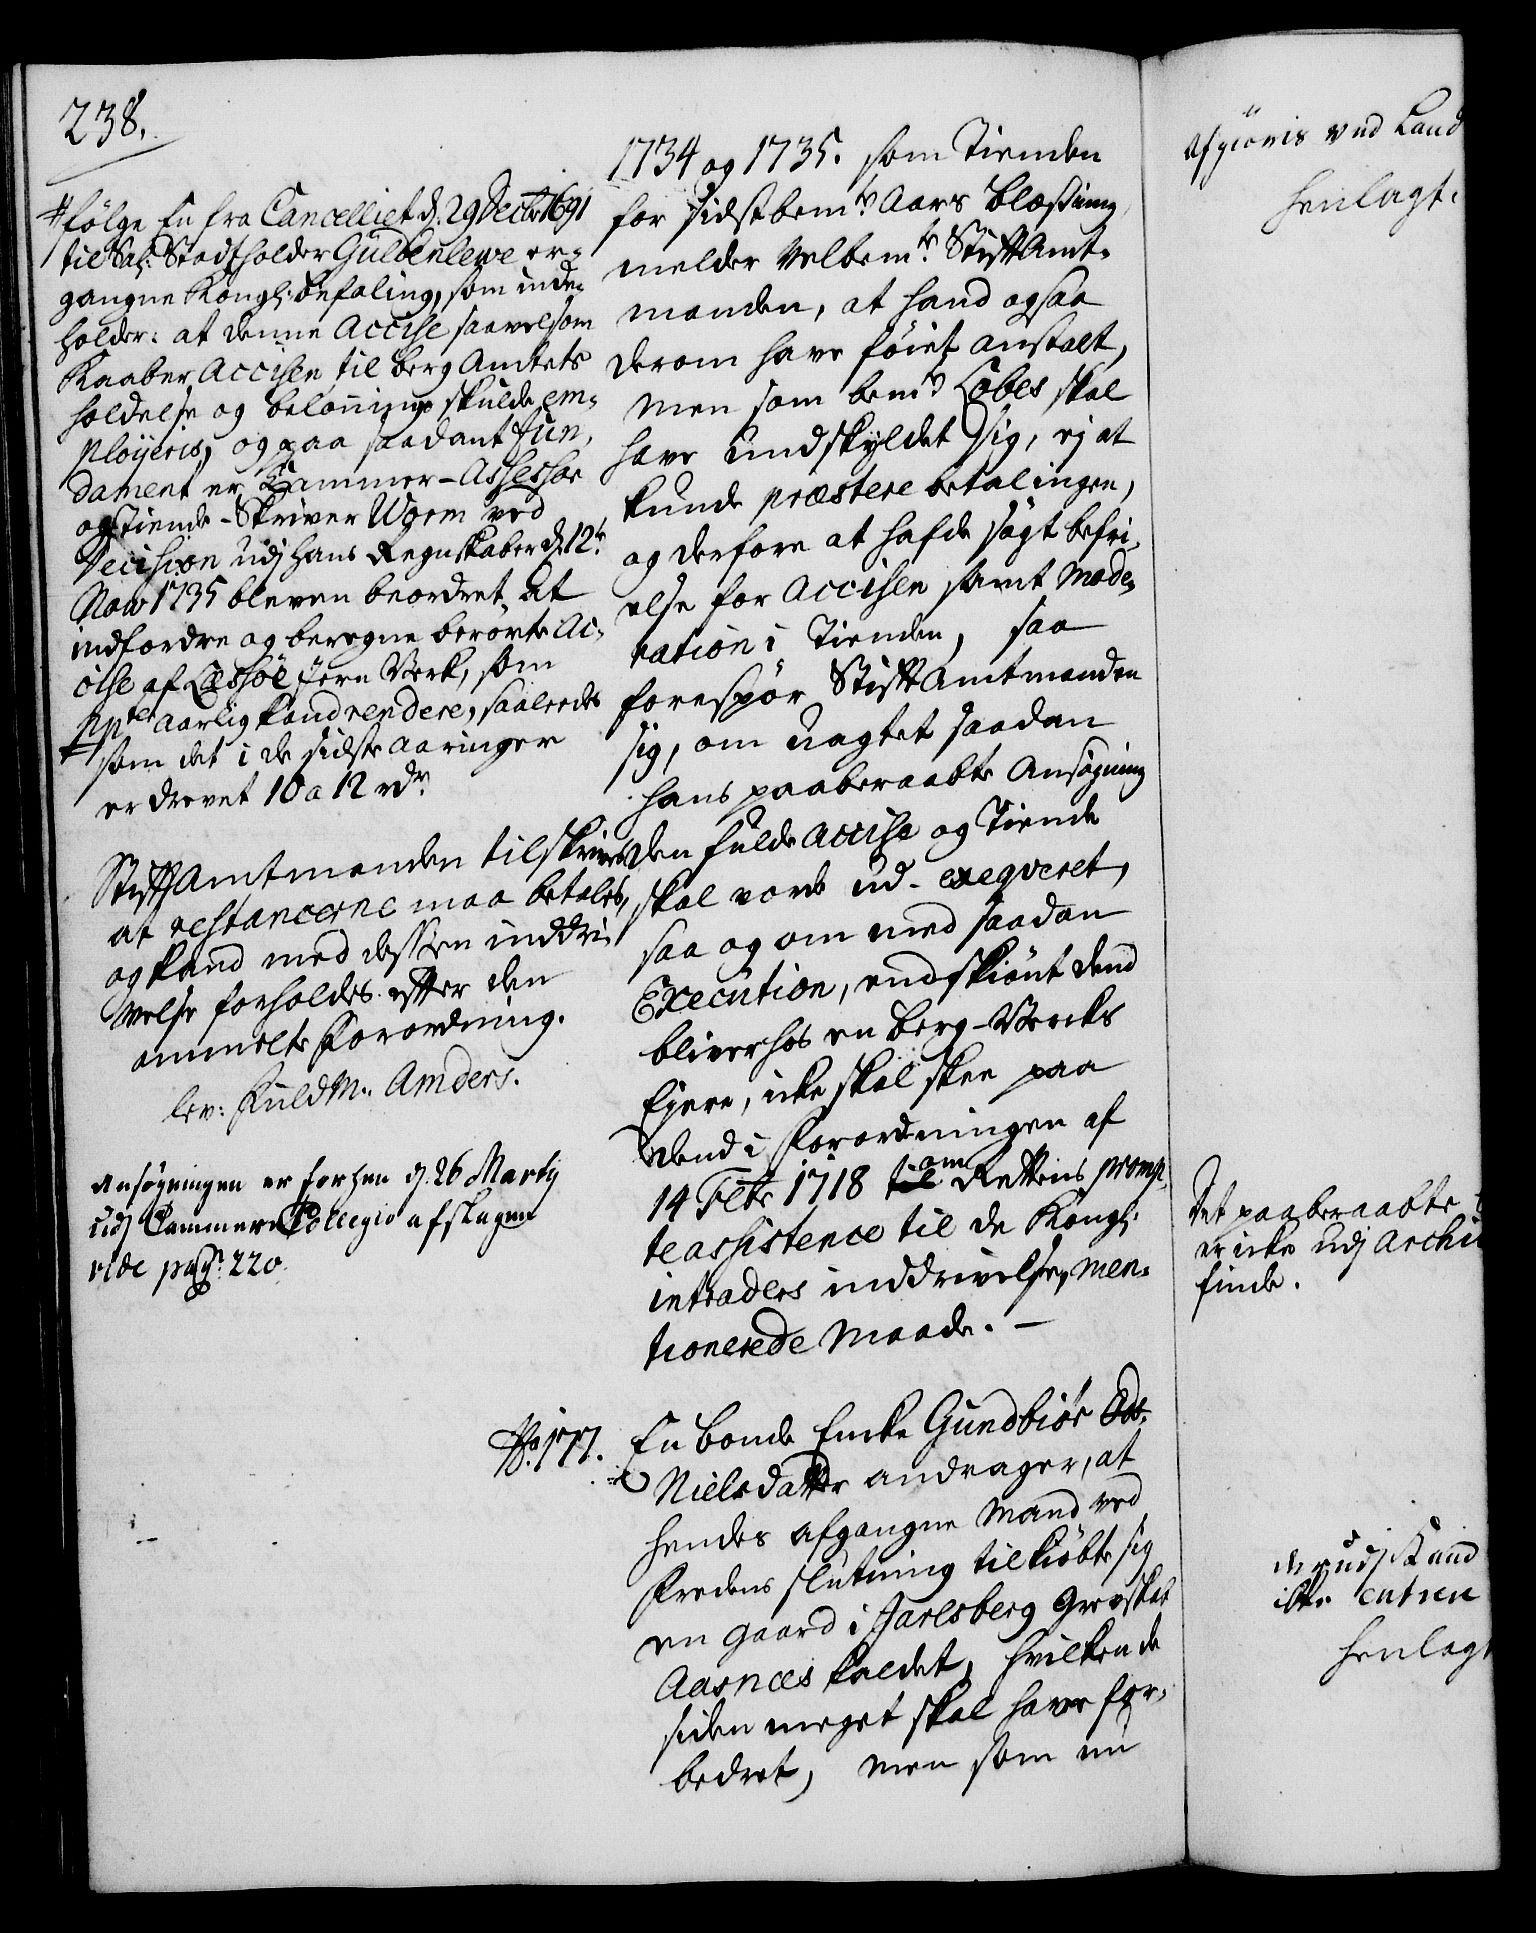 238.
# følge En fra Cancelliet d. 29 Decbr 1691
til Sal: Stadtholder Guldenlewe er-
gangne Kongl: befaling, som inde-
holder: at denne Accise saavelsom
Kaaber Accisen til berg Amtets
holdelse og belønning skulde em-
ployeris, og paa saadant Fun-
dament er Kammer-Assessor
og Tiende-Skriver Worm ved
Decision udj hans Regnskaber d. 12te
Nov 1735 bleven beordret at
indfordre og beregne berørte Ac-
cise af Læssøe Jern Verk, som
ppter aarlig kand rendere, saaleedes
som det i de sidste Aaringer
er drevet 10 a 12 rdr.
StiftAmtmanden tilskrives
at restancerne maa betales,
og kand med dessen inddri-
velse forholdes efter den
ommelte Forordning.
lev: Fuldm: Amders.
Ansøgningen er forhen d. 26 Martij
udj Cammer Collegio afslagen
vide pag: 220.
1734 og 1735. som Tienden
for sidstbemte Aars blæsning
melder Velbemte StiftAmt-
manden, at hand ogsaa
derom have føiet anstalt,
men som bemte Cobes skal
have undskyldet sig, ej at
kunde præstere betalingen,
og derfore at hafde søgt befri-
else for Accisen samt Mode-
ration i Tienden, saa
forespør StiftAmtmanden
sig, om uagtet saadan
hans paaberaabte Ansøgning
den fulde Accise og Tiende
skal vorde ud-exeqveret,
saa og om med saadan
Execution, endskiønt dend
bliver hos en Berg-Vercks
Ejere, icke skal skee paa
dend i Forordningen af
14 Febr 1718 til om Rettens promp-
te assistence til de Kongl:
intraders inddrivelse, men-
tionerede Maade. —
No. 177. En bonde Encke Gundbiør Ods-
Nielsdatter andrager, at
hendes afgangne Mand ved
Fredens slutning tilkiøbte sig
en gaard i Jarlsberg Grevskab
Aasnæs kaldet, hvilken de
siden meget skal have for-
bedret, men som nu
afgiøris ved Land
henlagt.
Det paaberaabte
er icke udj Archi
finde.
udj
icke
henlagt